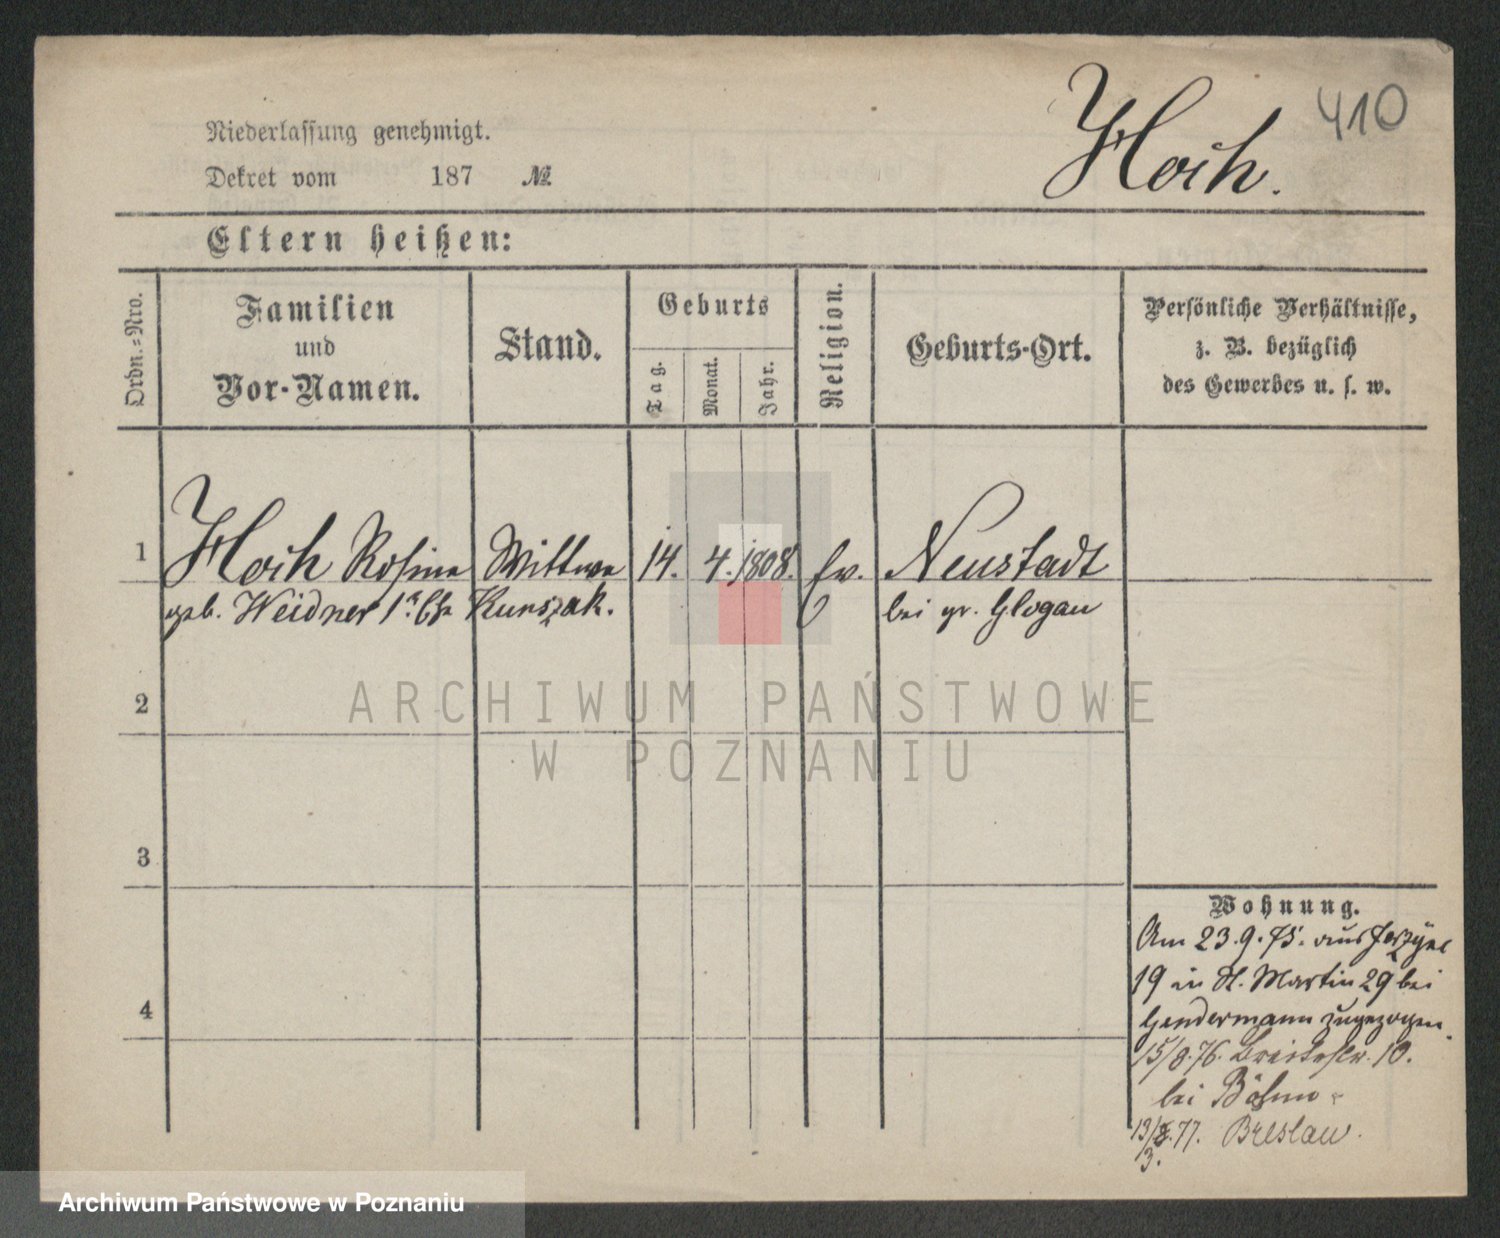 410
Hoch.
Niederlassung genehmigt.
Dekret vom 187 №
Eltern heißen:
Ordn.-Nro.
Familien
und
Vor-Namen.
Stand.
Geburts
Tag.
Monat.
Jahr.
Religion.
Geburts-Ort.
Persönliche Verhältnisse,
z. B. bezüglich
des Gewerbes u. s. w.
1 Hoch Rosina Wittwe 14. 4. 1808. ev. Neustadt
geb. Weidner Kunszak. bei gr. Glogau
2
3
4
Wohnung.
Am 23.9.75. aus
19 in St. Martin 29 bei
Gendermann zugezogen.
15/8.76. Breitestr. 10.
bei Böhm
13/ 77. Breslau.
3.
ARCHIWUM PAŃSTWOWE
W POZNANIU
Archiwum Państwowe w Poznaniu